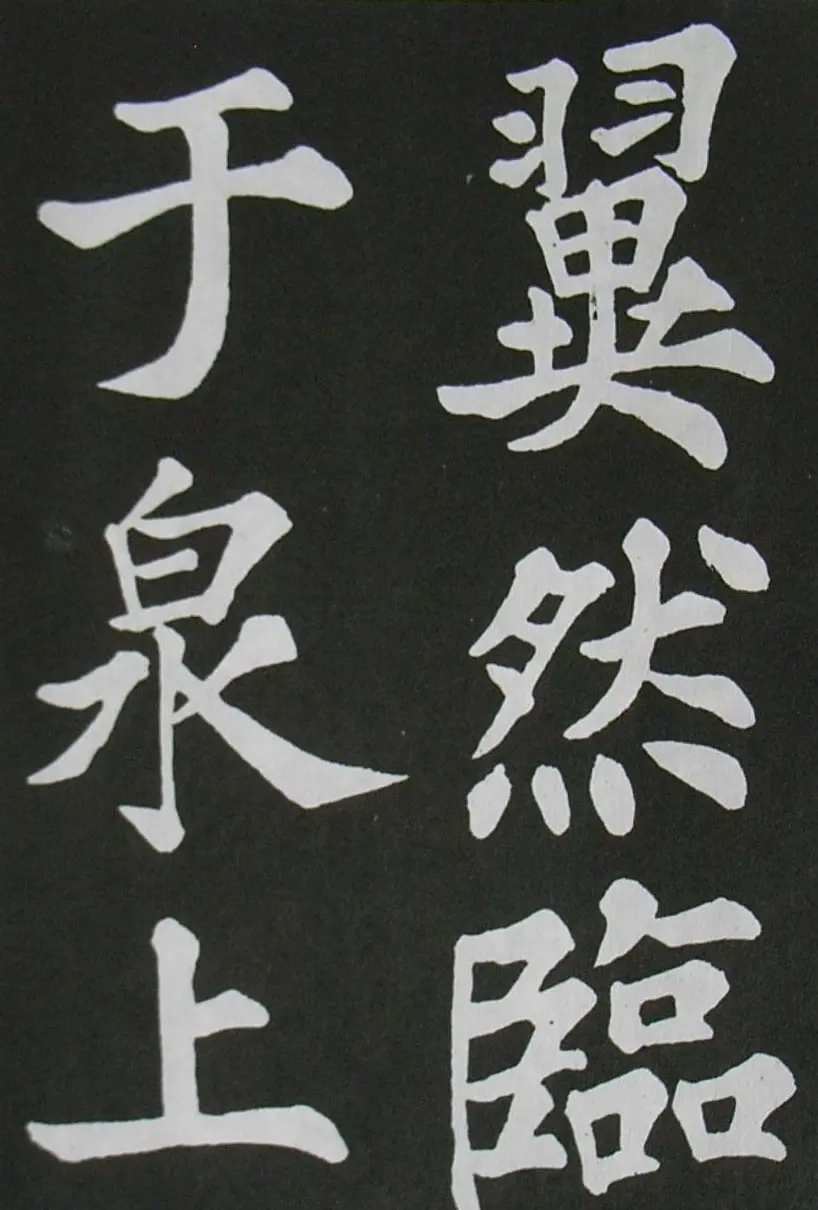 翼然臨
于泉上